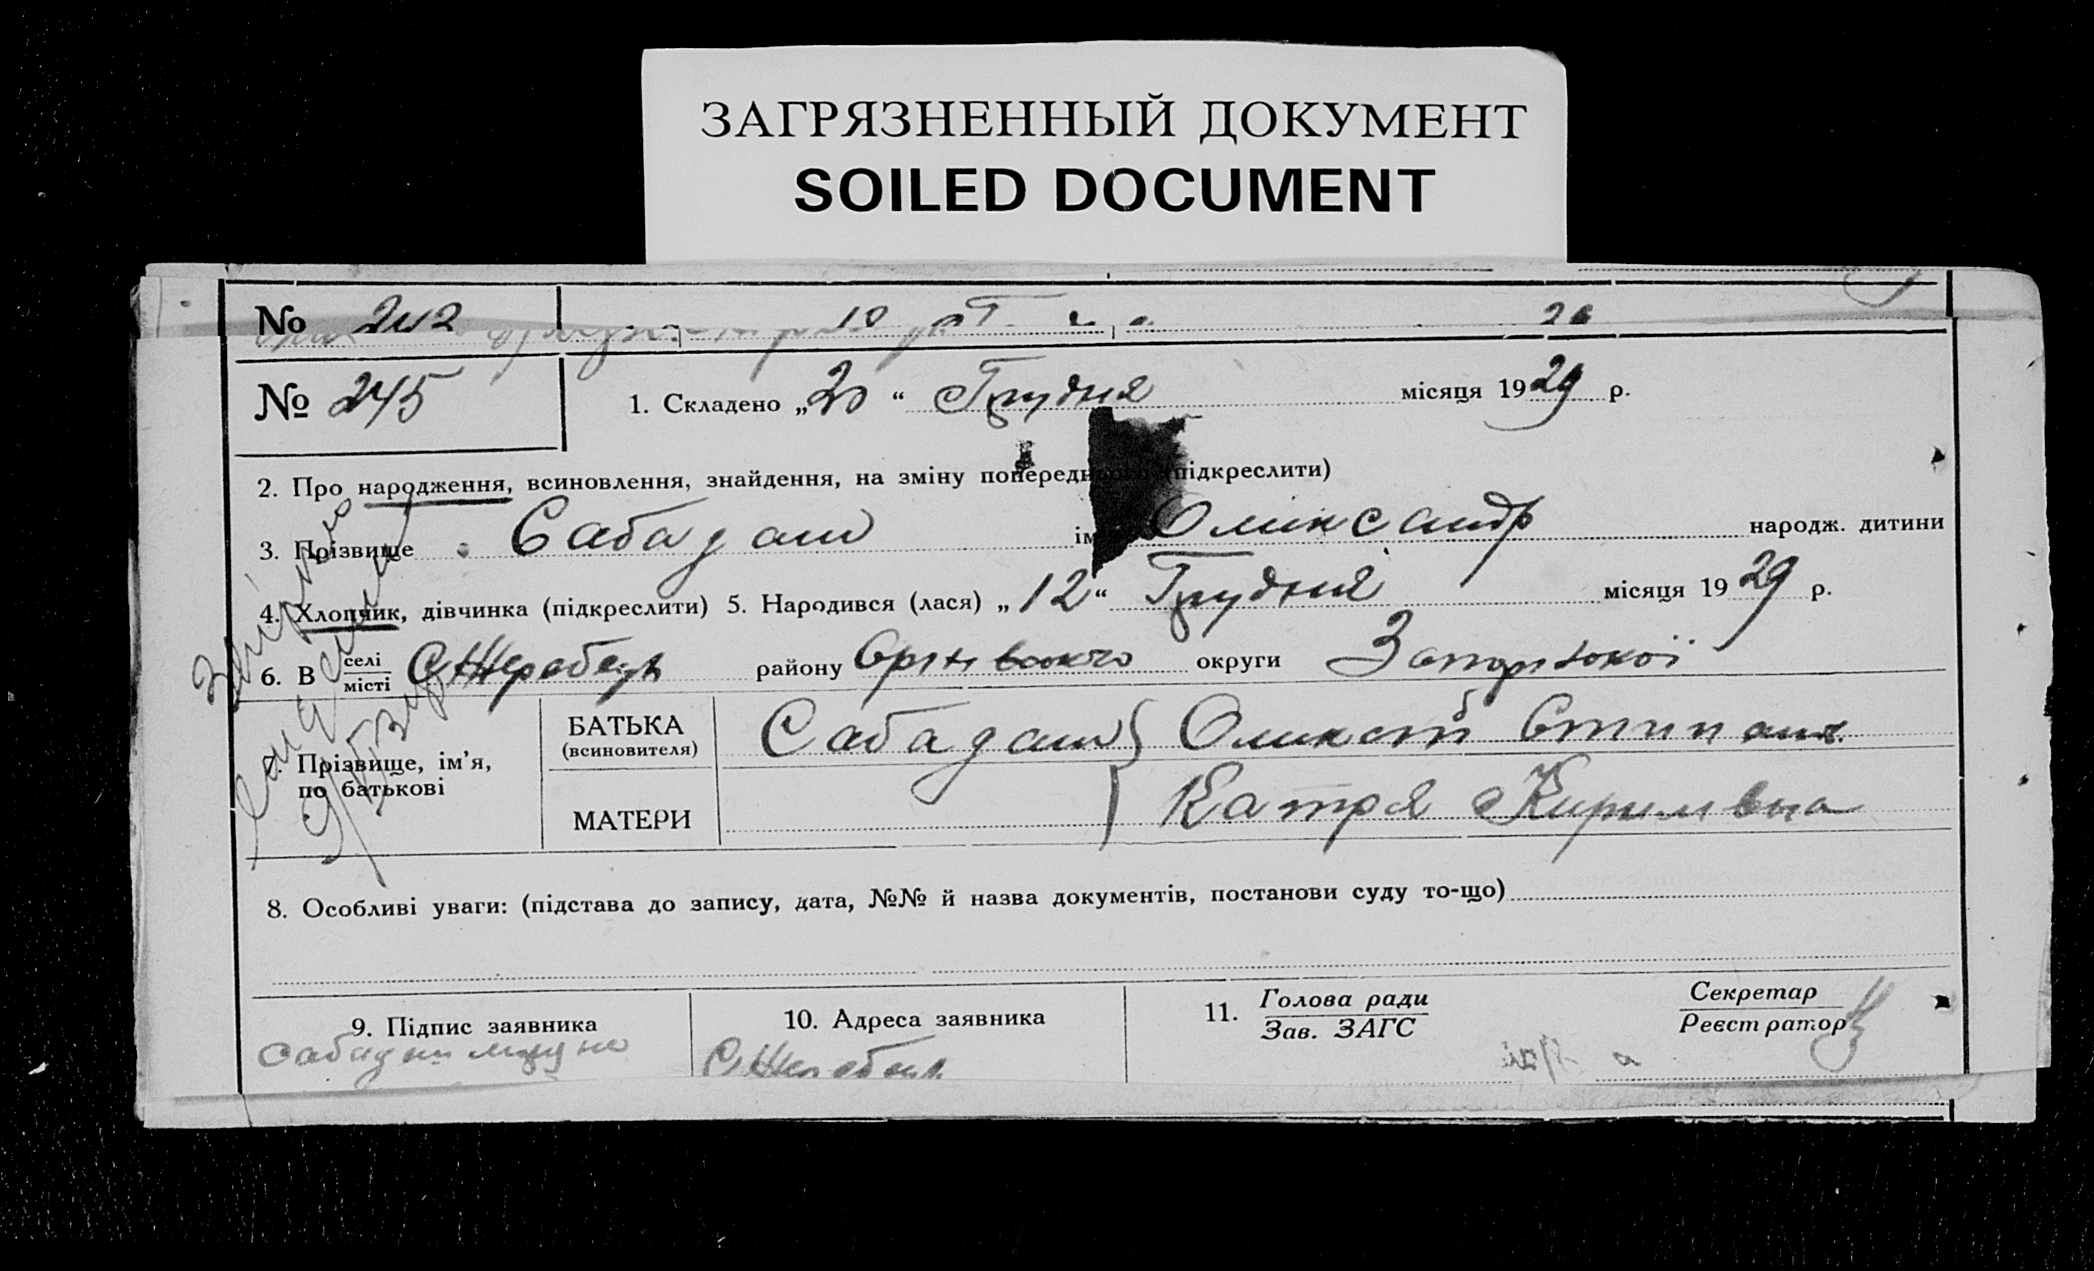 ЗАГРЯЗНЕННЫЙ ДОКУМЕНТ
SOILED DOCUMENT
№ 242
№ 245
1. Складено „20“ Грудня місяця 1929 р.
2. Про народження, всиновлення, знайдення, на зміну попереднього (підкреслити)
3. Прізвище Сабадаш ім Олександр народж. дитини
4. Хлопчик, дівчинка (підкреслити) 5. Народився (лася) „12“ Грудня місяця 1929 р.
6. В селі місті С Жеребець району Оріхівського округи Запоріжокої
7. Прізвище, ім’я, по батькові
БАТЬКА (всиновителя) Сабадаш Степан
МАТЕРИ Катря Кирилівна
8. Особливі уваги: (підстава до запису, дата, №№ й назва документів, постанови суду то-що)
9. Підпис заявника
10. Адреса заявника
11. Голова ради Зав. ЗАГС
Секретар Реєстратор
Сабадаш
С Жеребец